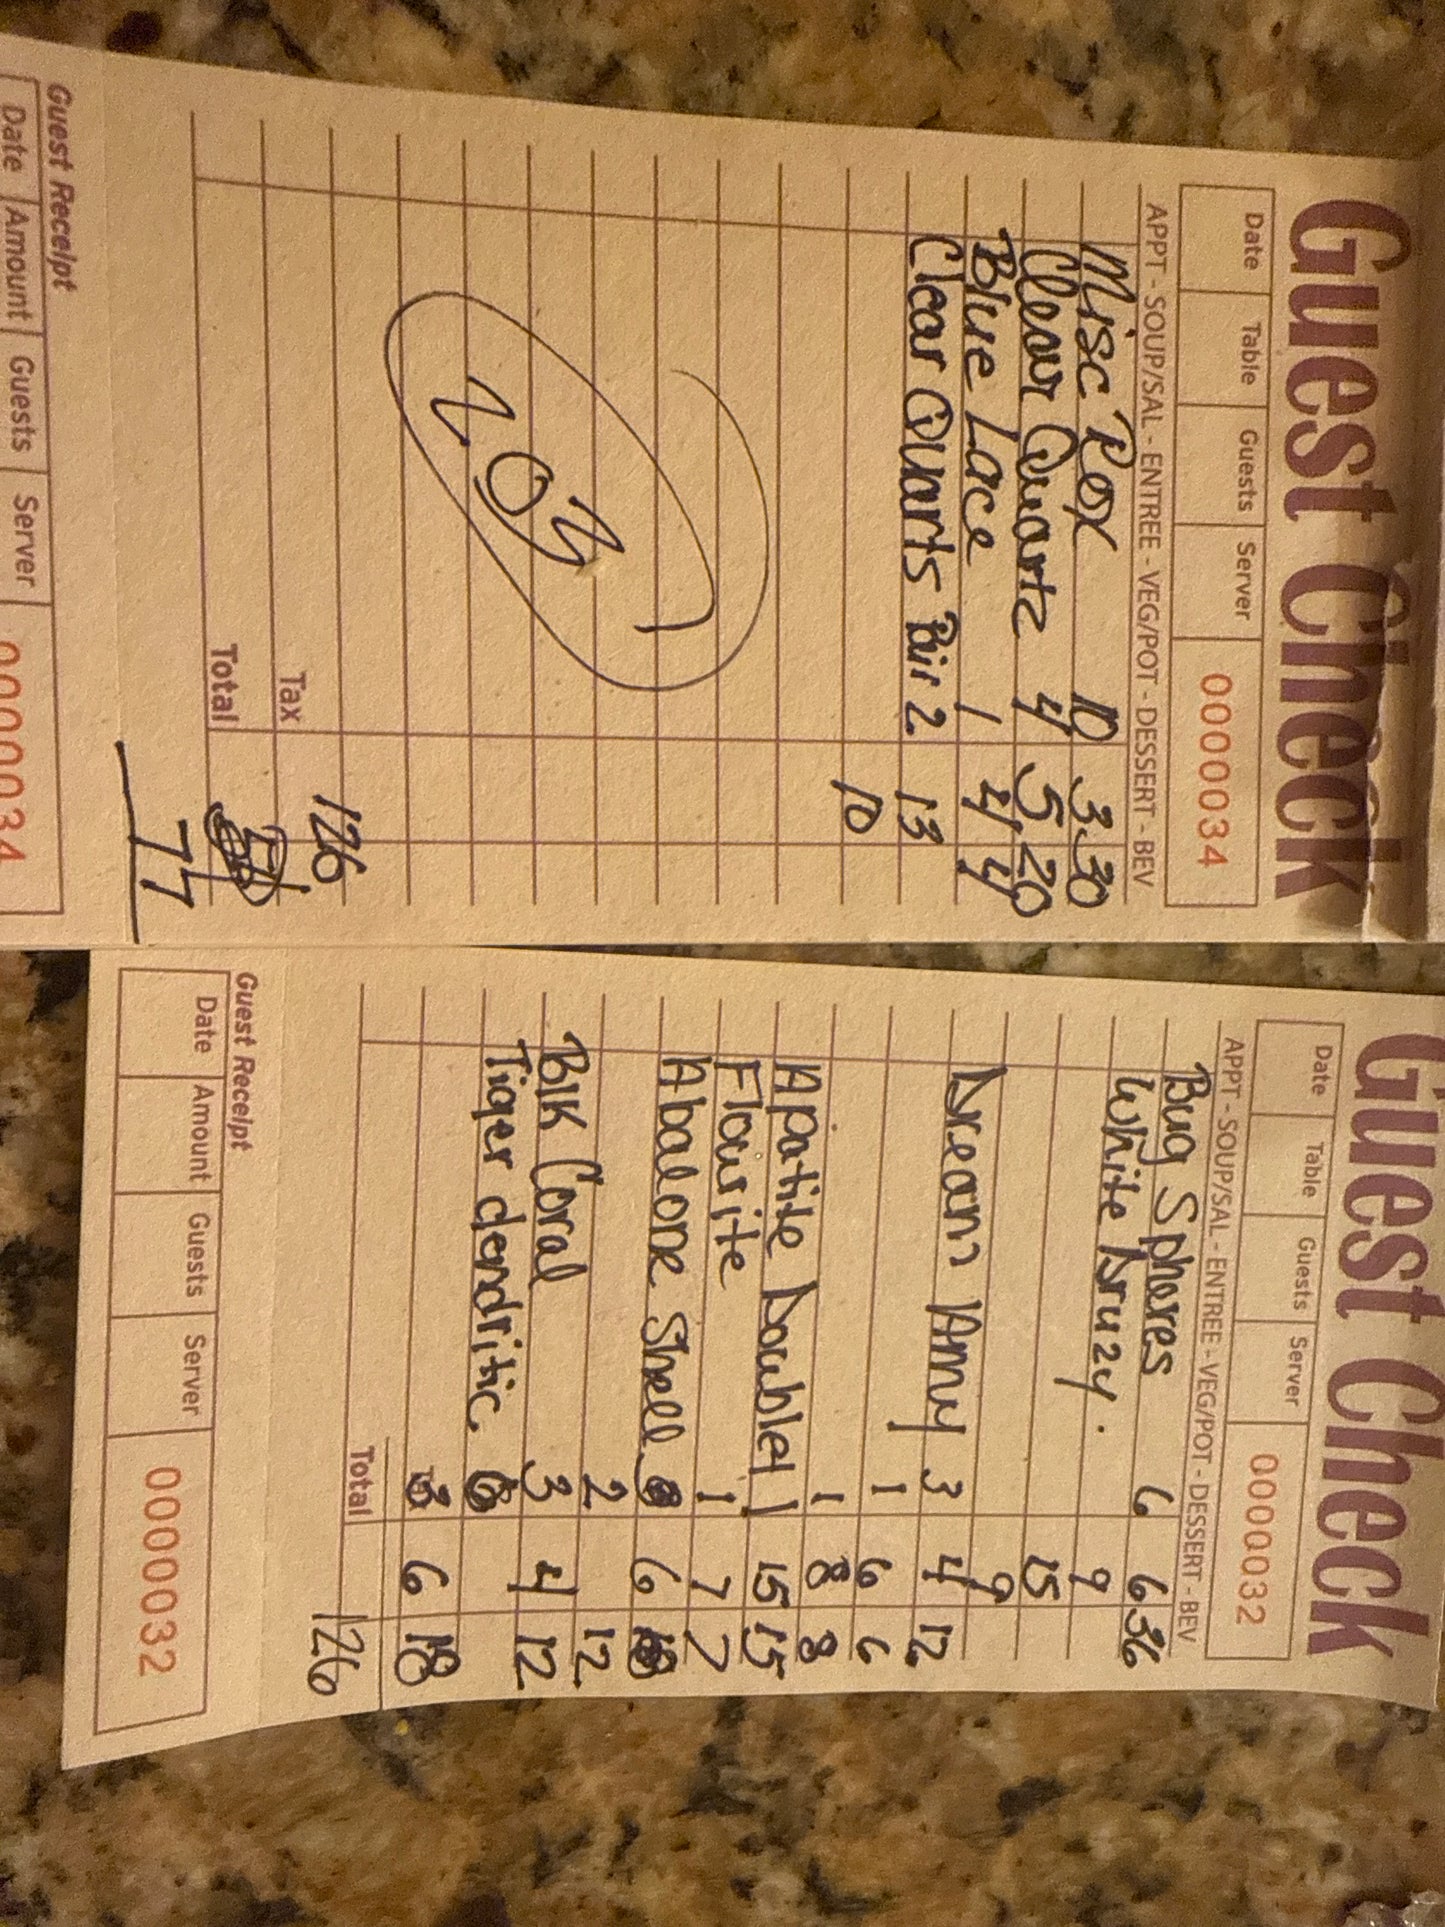 Guest Check
Date Table Guests Server 0000034
APPT - SOUP/SAL - ENTREE - VEG/POT - DESSERT - BEV
Misc Rox 10 3 30
Clear Quartz 4 5 20
Blue Lace 1 4 4
Clear Quarts Pair 2 13
10
203
126
Tax
Total
77
Guest Receipt
Date Amount Guests Server 0000034
Guest Check
Date Table Guests Server 0000032
APPT - SOUP/SAL - ENTREE - VEG/POT - DESSERT - BEV
Bug Spheres 6 6 36
White Druzy. 9
15
9
Dream Amy 3 4 12
1 6 6
1 8 8
Apatite Doublet 1 15 15
Flourite 1 7 7
Abalone Shell 6
2 12
Blk Coral 3 4 12
Tiger dendritic
3 6 18
Total 126
Guest Receipt
Date Amount Guests Server 0000032